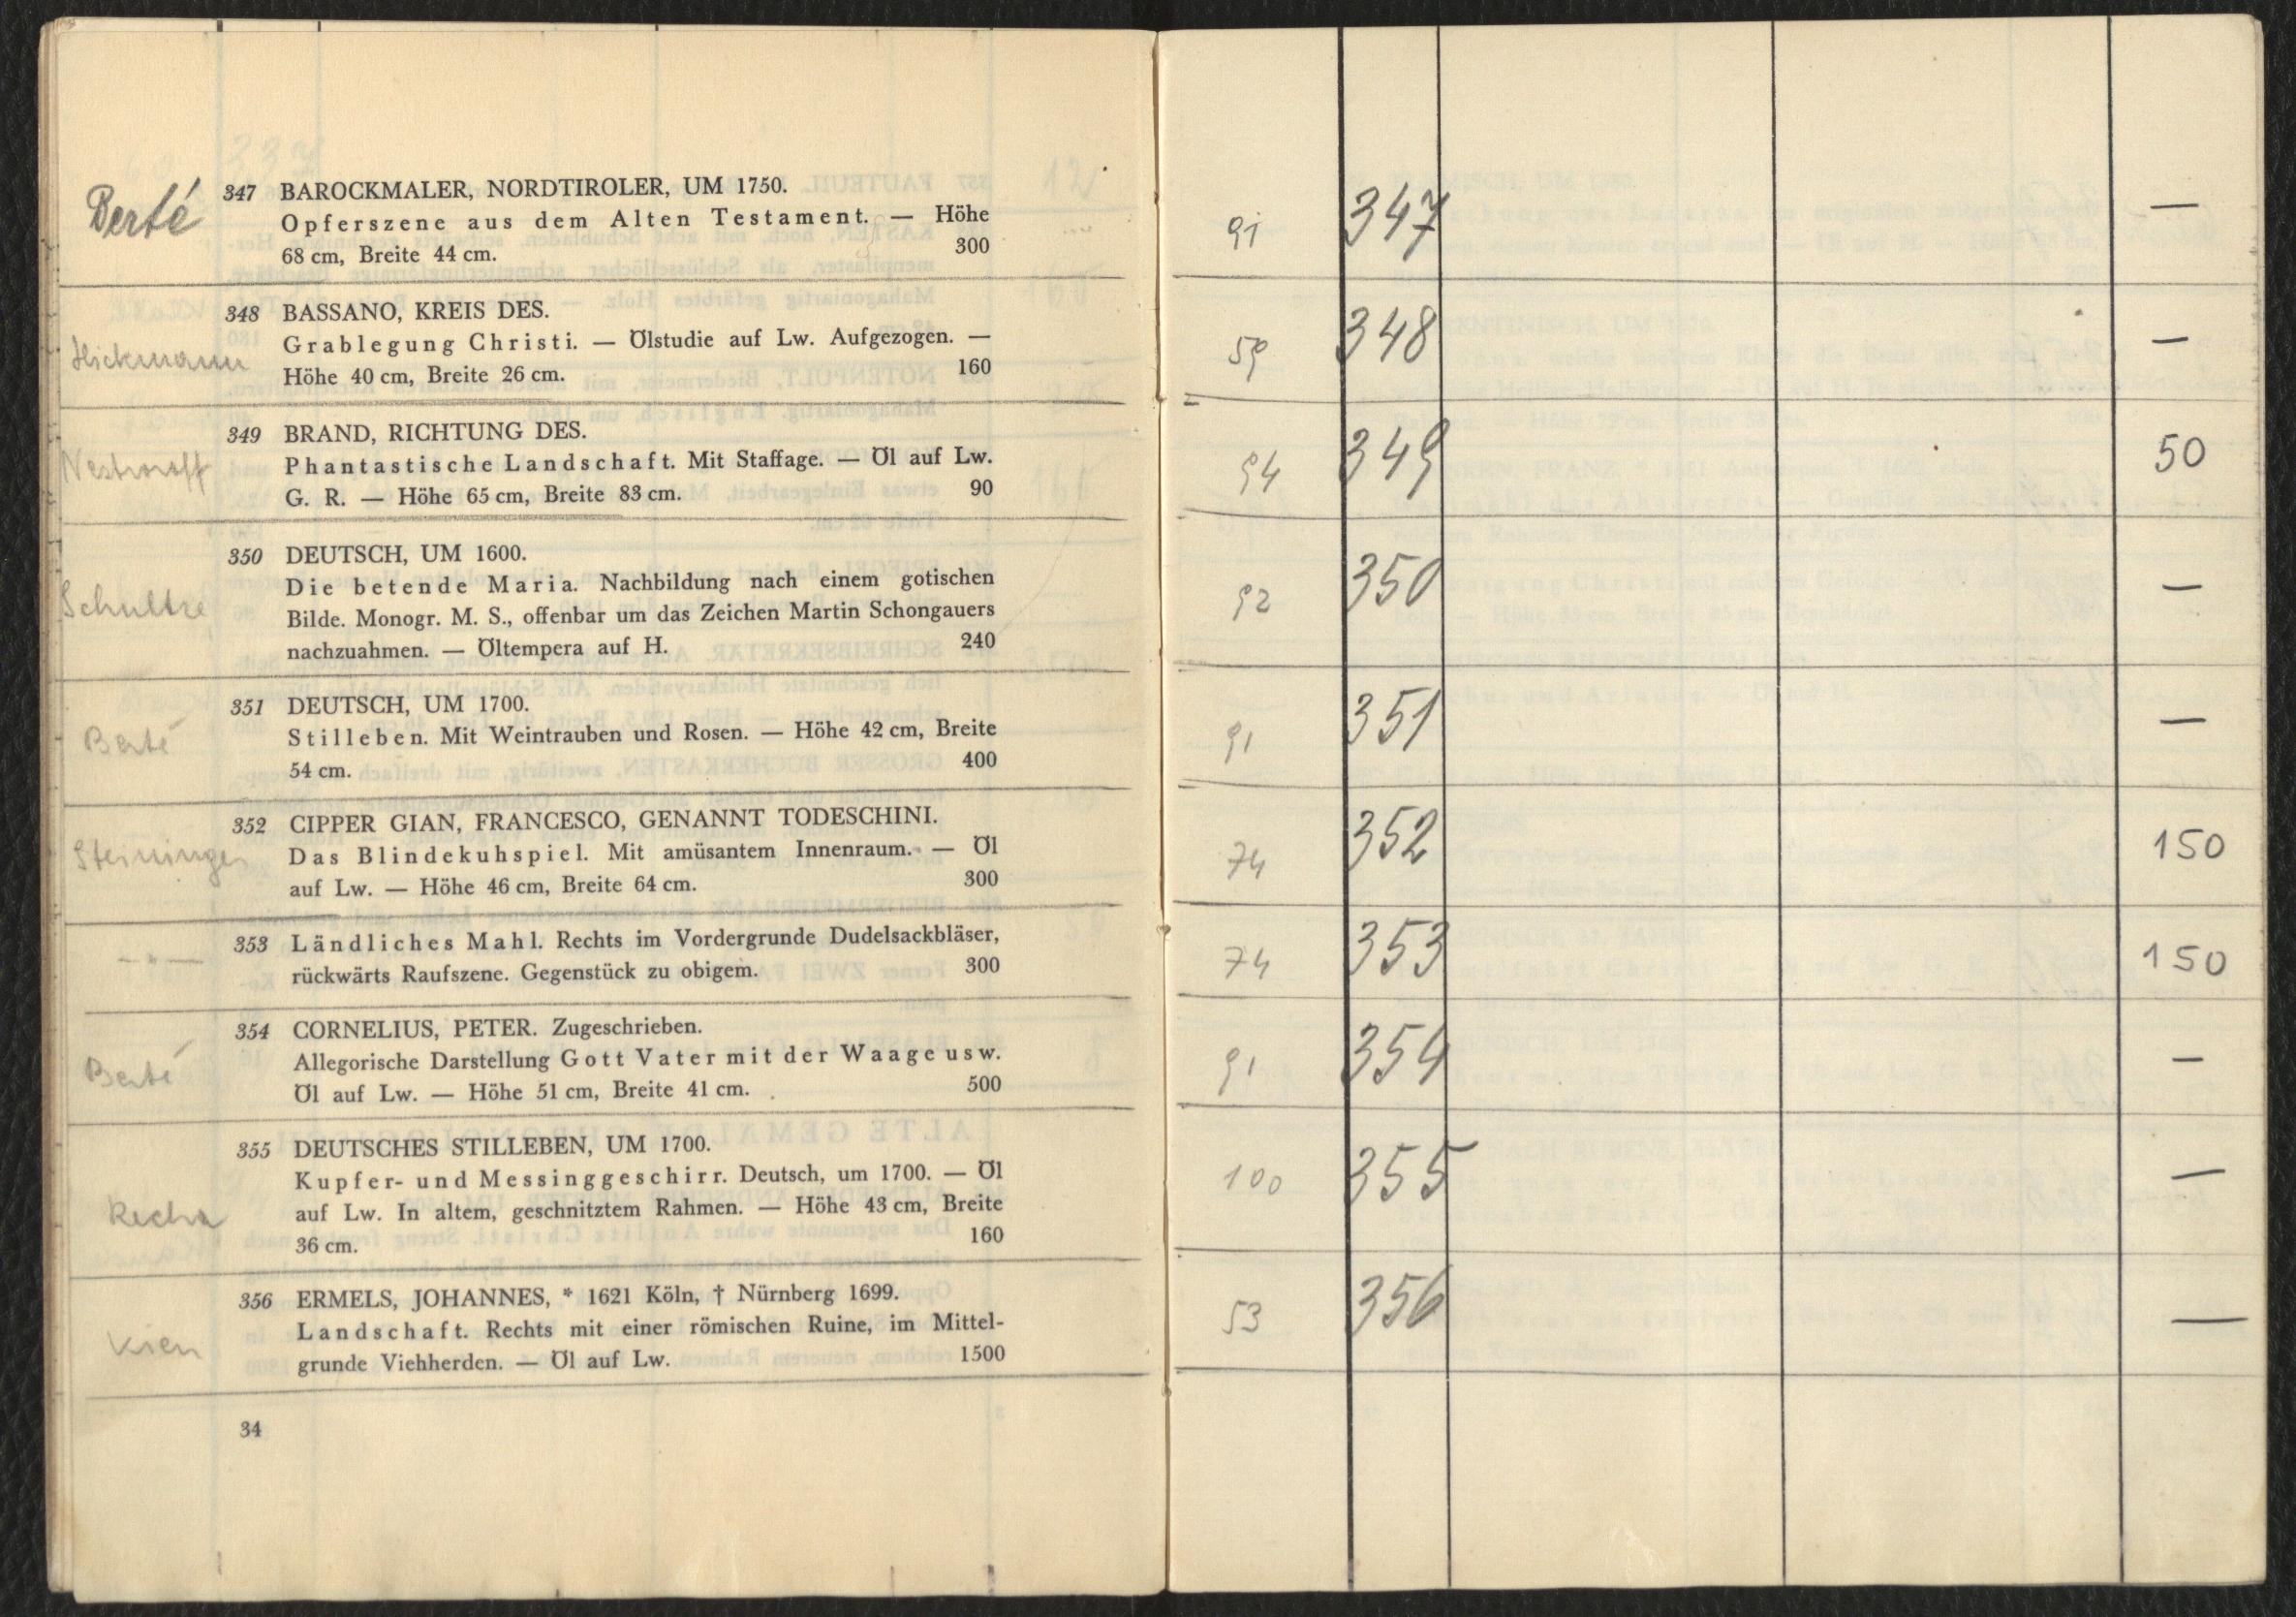 Berté
347 BAROCKMALER, NORDTIROLER, UM 1750.
Opferszene aus dem Alten Testament. — Höhe
68 cm, Breite 44 cm. 300
Hickmann
348 BASSANO, KREIS DES.
Grablegung Christi. — Ölstudie auf Lw. Aufgezogen. —
Höhe 40 cm, Breite 26 cm. 160
349 BRAND, RICHTUNG DES.
Phantastische Landschaft. Mit Staffage. — Öl auf Lw.
G. R. — Höhe 65 cm, Breite 83 cm. 90
Schultze
350 DEUTSCH, UM 1600.
Die betende Maria. Nachbildung nach einem gotischen
Bilde. Monogr. M. S., offenbar um das Zeichen Martin Schongauers
nachzuahmen. — Öltempera auf H. 240
Berté
351 DEUTSCH, UM 1700.
Stilleben. Mit Weintrauben und Rosen. — Höhe 42 cm, Breite
54 cm. 400
Steininger
352 CIPPER GIAN, FRANCESCO, GENANNT TODESCHINI.
Das Blindekuhspiel. Mit amüsantem Innenraum. — Öl
auf Lw. — Höhe 46 cm, Breite 64 cm. 300
— " —
353 Ländliches Mahl. Rechts im Vordergrunde Dudelsackbläser,
rückwärts Raufszene. Gegenstück zu obigem. 300
Berté
354 CORNELIUS, PETER. Zugeschrieben.
Allegorische Darstellung Gott Vater mit der Waage usw.
Öl auf Lw. — Höhe 51 cm, Breite 41 cm. 500
355 DEUTSCHES STILLEBEN, UM 1700.
Kupfer- und Messinggeschirr. Deutsch, um 1700. — Öl
auf Lw. In altem, geschnitztem Rahmen. — Höhe 43 cm, Breite
36 cm. 160
356 ERMELS, JOHANNES, * 1621 Köln, † Nürnberg 1699.
Landschaft. Rechts mit einer römischen Ruine, im Mittel-
grunde Viehherden. — Öl auf Lw. 1500
34
91 347 —
59 348 —
94 349 50
92 350 —
91 351 —
74 352 150
74 353 150
91 354 —
100 355 —
53 356 —